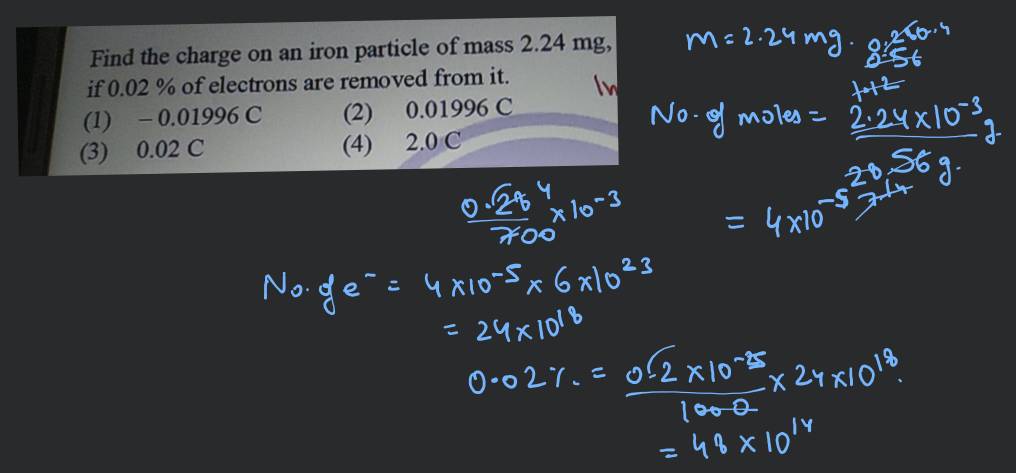 Find the charge on an iron particle of mass 2.24 mg,
if 0.02 % of electrons are removed from it.
(1) – 0.01996 C (2) 0.01996 C
(3) 0.02 C (4) 2.0 C
m = 2.24 mg.
0.56
1.12
No. of moles = 2.24 x 10⁻³ g.
56 g.
28
= 4 x 10⁻⁵
0.28 4 x 10⁻³
700
No. of e⁻ = 4 x 10⁻⁵ x 6 x 10²³
= 24 x 10¹⁸
0.02 %. = 0.2 x 10⁻ x 24 x 10¹⁸.
1000
= 48 x 10¹⁴